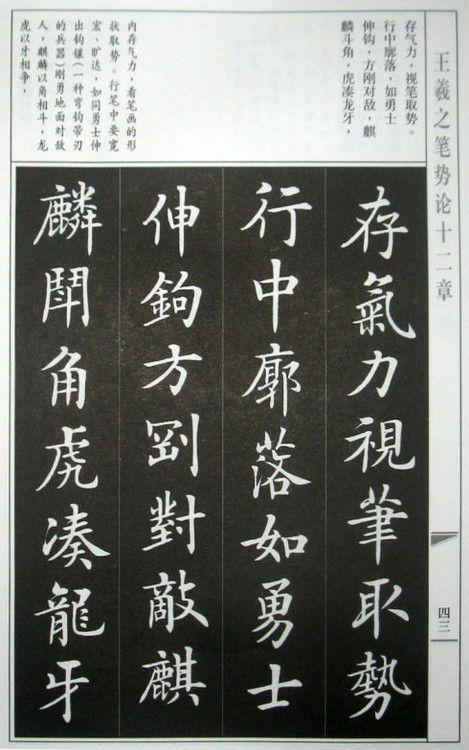 王羲之笔势论十二章
四三
存气力，视笔取势。
行中廓落，如勇士
伸钩，方刚对敌，麒
麟斗角，虎凑龙牙，
内存气力，看笔画的形
状取势。行笔中要宽
宏、旷达，如同勇士伸
出钩镶（一种弯钩带刃
的兵器）刚勇地面对敌
人，麒麟以角相斗，龙
虎以牙相争，
存氣力視筆取勢
行中廓落如勇士
伸鉤方剛對敵麒
麟鬥角虎凑龍牙